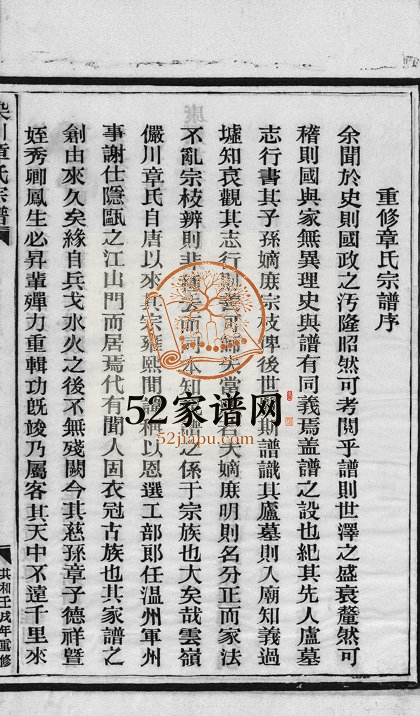 重修章氏宗譜序
余聞於史則國政之汚隆昭然可考閱乎譜則世澤之盛衰釐然可
稽則國與家無異理史與譜有同義焉蓋譜之設也紀其先人廬墓
志行書其子孫嫡庶宗枝俾後世斯譜識其廬墓則入廟知義過
墟知哀觀其志行則善可天嫡庶明則名分正而家法
不亂宗枝辨則非而知之係于宗族也大矣哉雲嶺
儼川章氏自唐以來宗雍熙間以恩選工部郎任温州軍州
事謝仕隱甌之江山門而居焉代有聞人固衣冠古族也其家譜之
創由來久矣緣自兵戈水火之後不無殘闕今其慈孫章子德祥暨
姪秀卿鳳生必昇輩殫力重輯功旣竣乃屬客其天中不遠千里來
川章氏宗譜
共和壬戌年重修
52家谱网
52jiapu.com